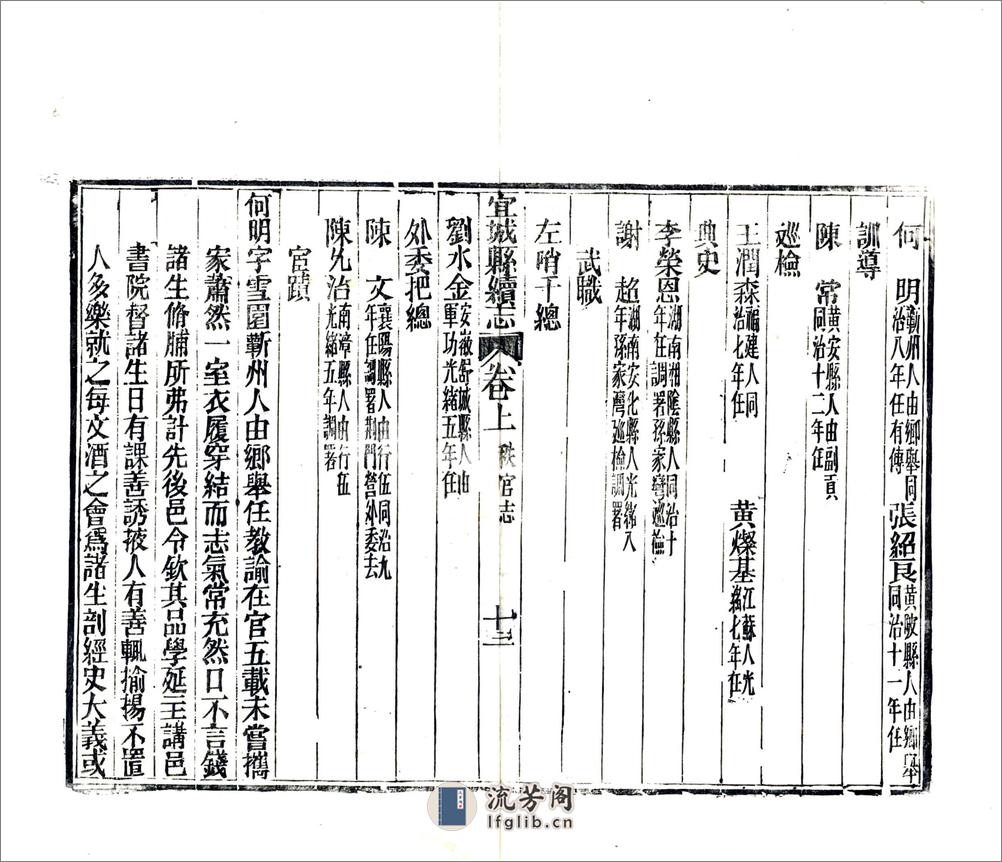 何　明蘄州人由鄉舉同治八年任有傳　張紹良黃陂縣人由鄉舉同治十一年任
訓導
陳　常黃安縣人由副貢同治十二年任
巡檢
王潤森福建人同治七年任　黃燦基江蘇人光緒七年任
典史
李榮恩湖南湘陰縣人同治十年在任調署孫家灣巡檢
謝　超湖南安化縣人光緒八年孫家灣巡檢調署
武職
左哨千總
宜城縣續志　卷上　秩官志　十三
劉水金安徽舒城縣人由軍功光緒五年任
外委把總
陳　文襄陽縣人由行伍同治九年任調署荊門營外委去
陳允治南漳縣人由行伍光緒五年調署
宦蹟
何明字雪園蘄州人由鄉舉任教諭在官五載未嘗攜
家蕭然一室衣履穿結而志氣常充然口不言錢
諸生脩脯所弗計先後邑令欽其品學延主講邑
書院督諸生日有課善誘掖人有善輒揄揚不置
人多樂就之每文酒之會爲諸生剖經史大義或
流芳阁
lfglib.cn